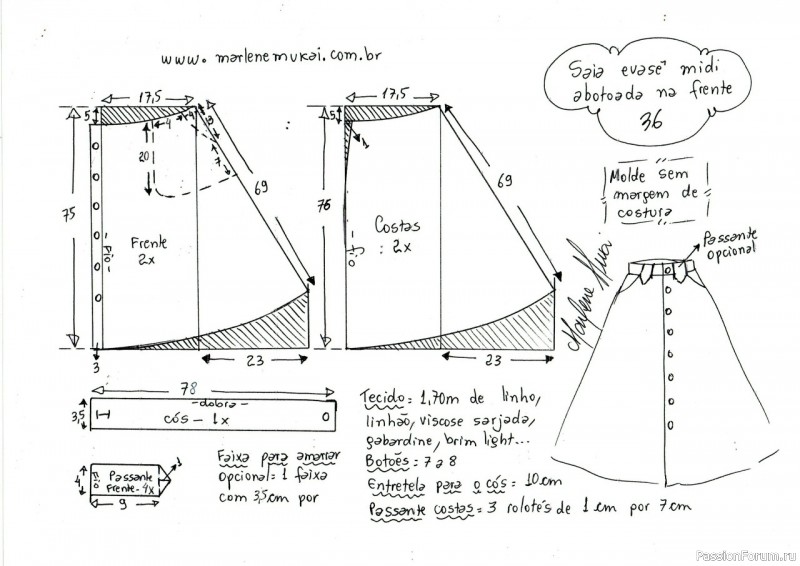 www.marlenemukai.com.br
Saia evasê midi
abotoada na frente
36
Molde sem
margem de
costura
17,5
5
4
4
3
20
7
69
75
Frente
2x
Fio
3
23
17,5
5
1
69
76
Costas
: 2x
Fio
23
Passante
opcional
Marlene Mukai
78
3,5
-dobra-
cós - 1x
4
Fio
Passante
Frente-4x
9
1
Faixa para amarrar
opcional = 1 faixa
com 3,5cm por
Tecido = 1,70m de linho,
linhão, viscose sarjada,
gabardine, brim light...
Botões = 7 a 8
Entretela para o cós = 10cm
Passante costas = 3 rolotês de 1cm por 7cm
PassionForum.ru